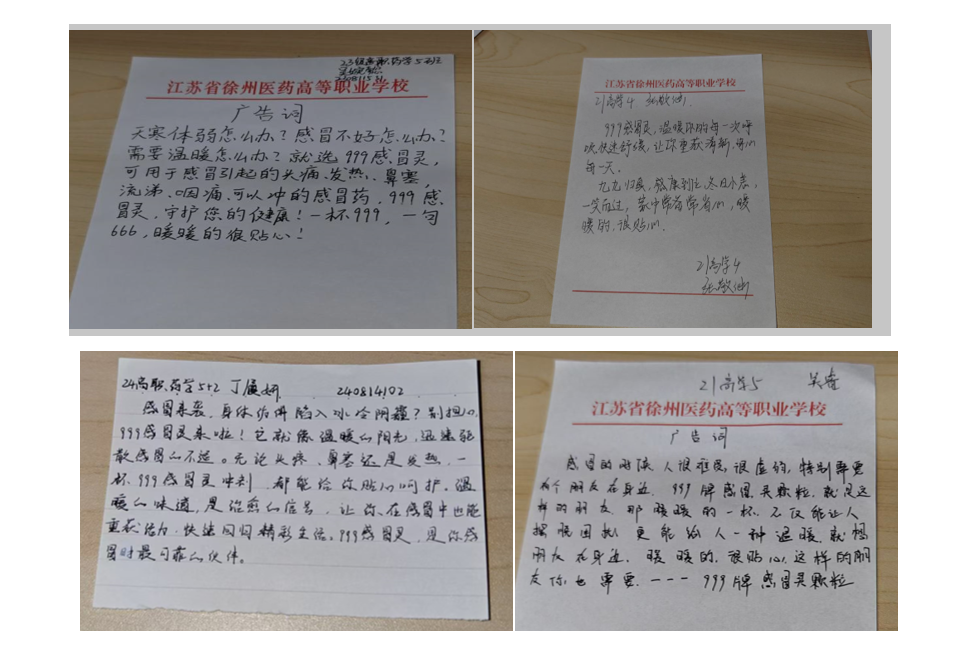 江苏省徐州医药高等职业学校
广告词
天寒体弱怎么办？感冒不好怎么办？
需要温暖怎么办？就选999感冒灵，
可用于感冒引起的头痛、发热、鼻塞，
流涕、咽痛、可以冲的感冒药，999感
冒灵，守护您的健康！一杯999，一句
666，暖暖的很贴心！
江苏省徐州医药高等职业学校
21高学4
999感冒灵，温暖你的每一次呼
吸，快速舒缓，让你重获清新、舒心
每一天。
一笑而过，
暖
暖的，很贴心。
21高学4
24高职药学5+2 丁 妍 240814102
感冒来袭，身体仿佛陷入冰冷阴霾？别担心，
999感冒灵来啦！它就像温暖的阳光，迅速驱
散感冒的不适。无论头疼、鼻塞还是发热，一
杯999感冒灵冲剂，都能给你贴心呵护。温
暖的味道，是治愈的信号，让你在感冒中也能
重获活力，快速回归精彩生活。999感冒灵，是你感
冒时最可靠的伙伴。
21高学5 吴睿
江苏省徐州医药高等职业学校
广告词
感冒的时候，人很难受，很虚的，特别需要
有个朋友在身边，999牌感冒灵颗粒，就是这
样的朋友，那暖暖的一杯，不仅能让人
摆脱困扰，更能给人一种温暖，就想
朋友在身边，暖暖的，很贴心，这样的朋
友你也需要，——— 999牌感冒灵颗粒